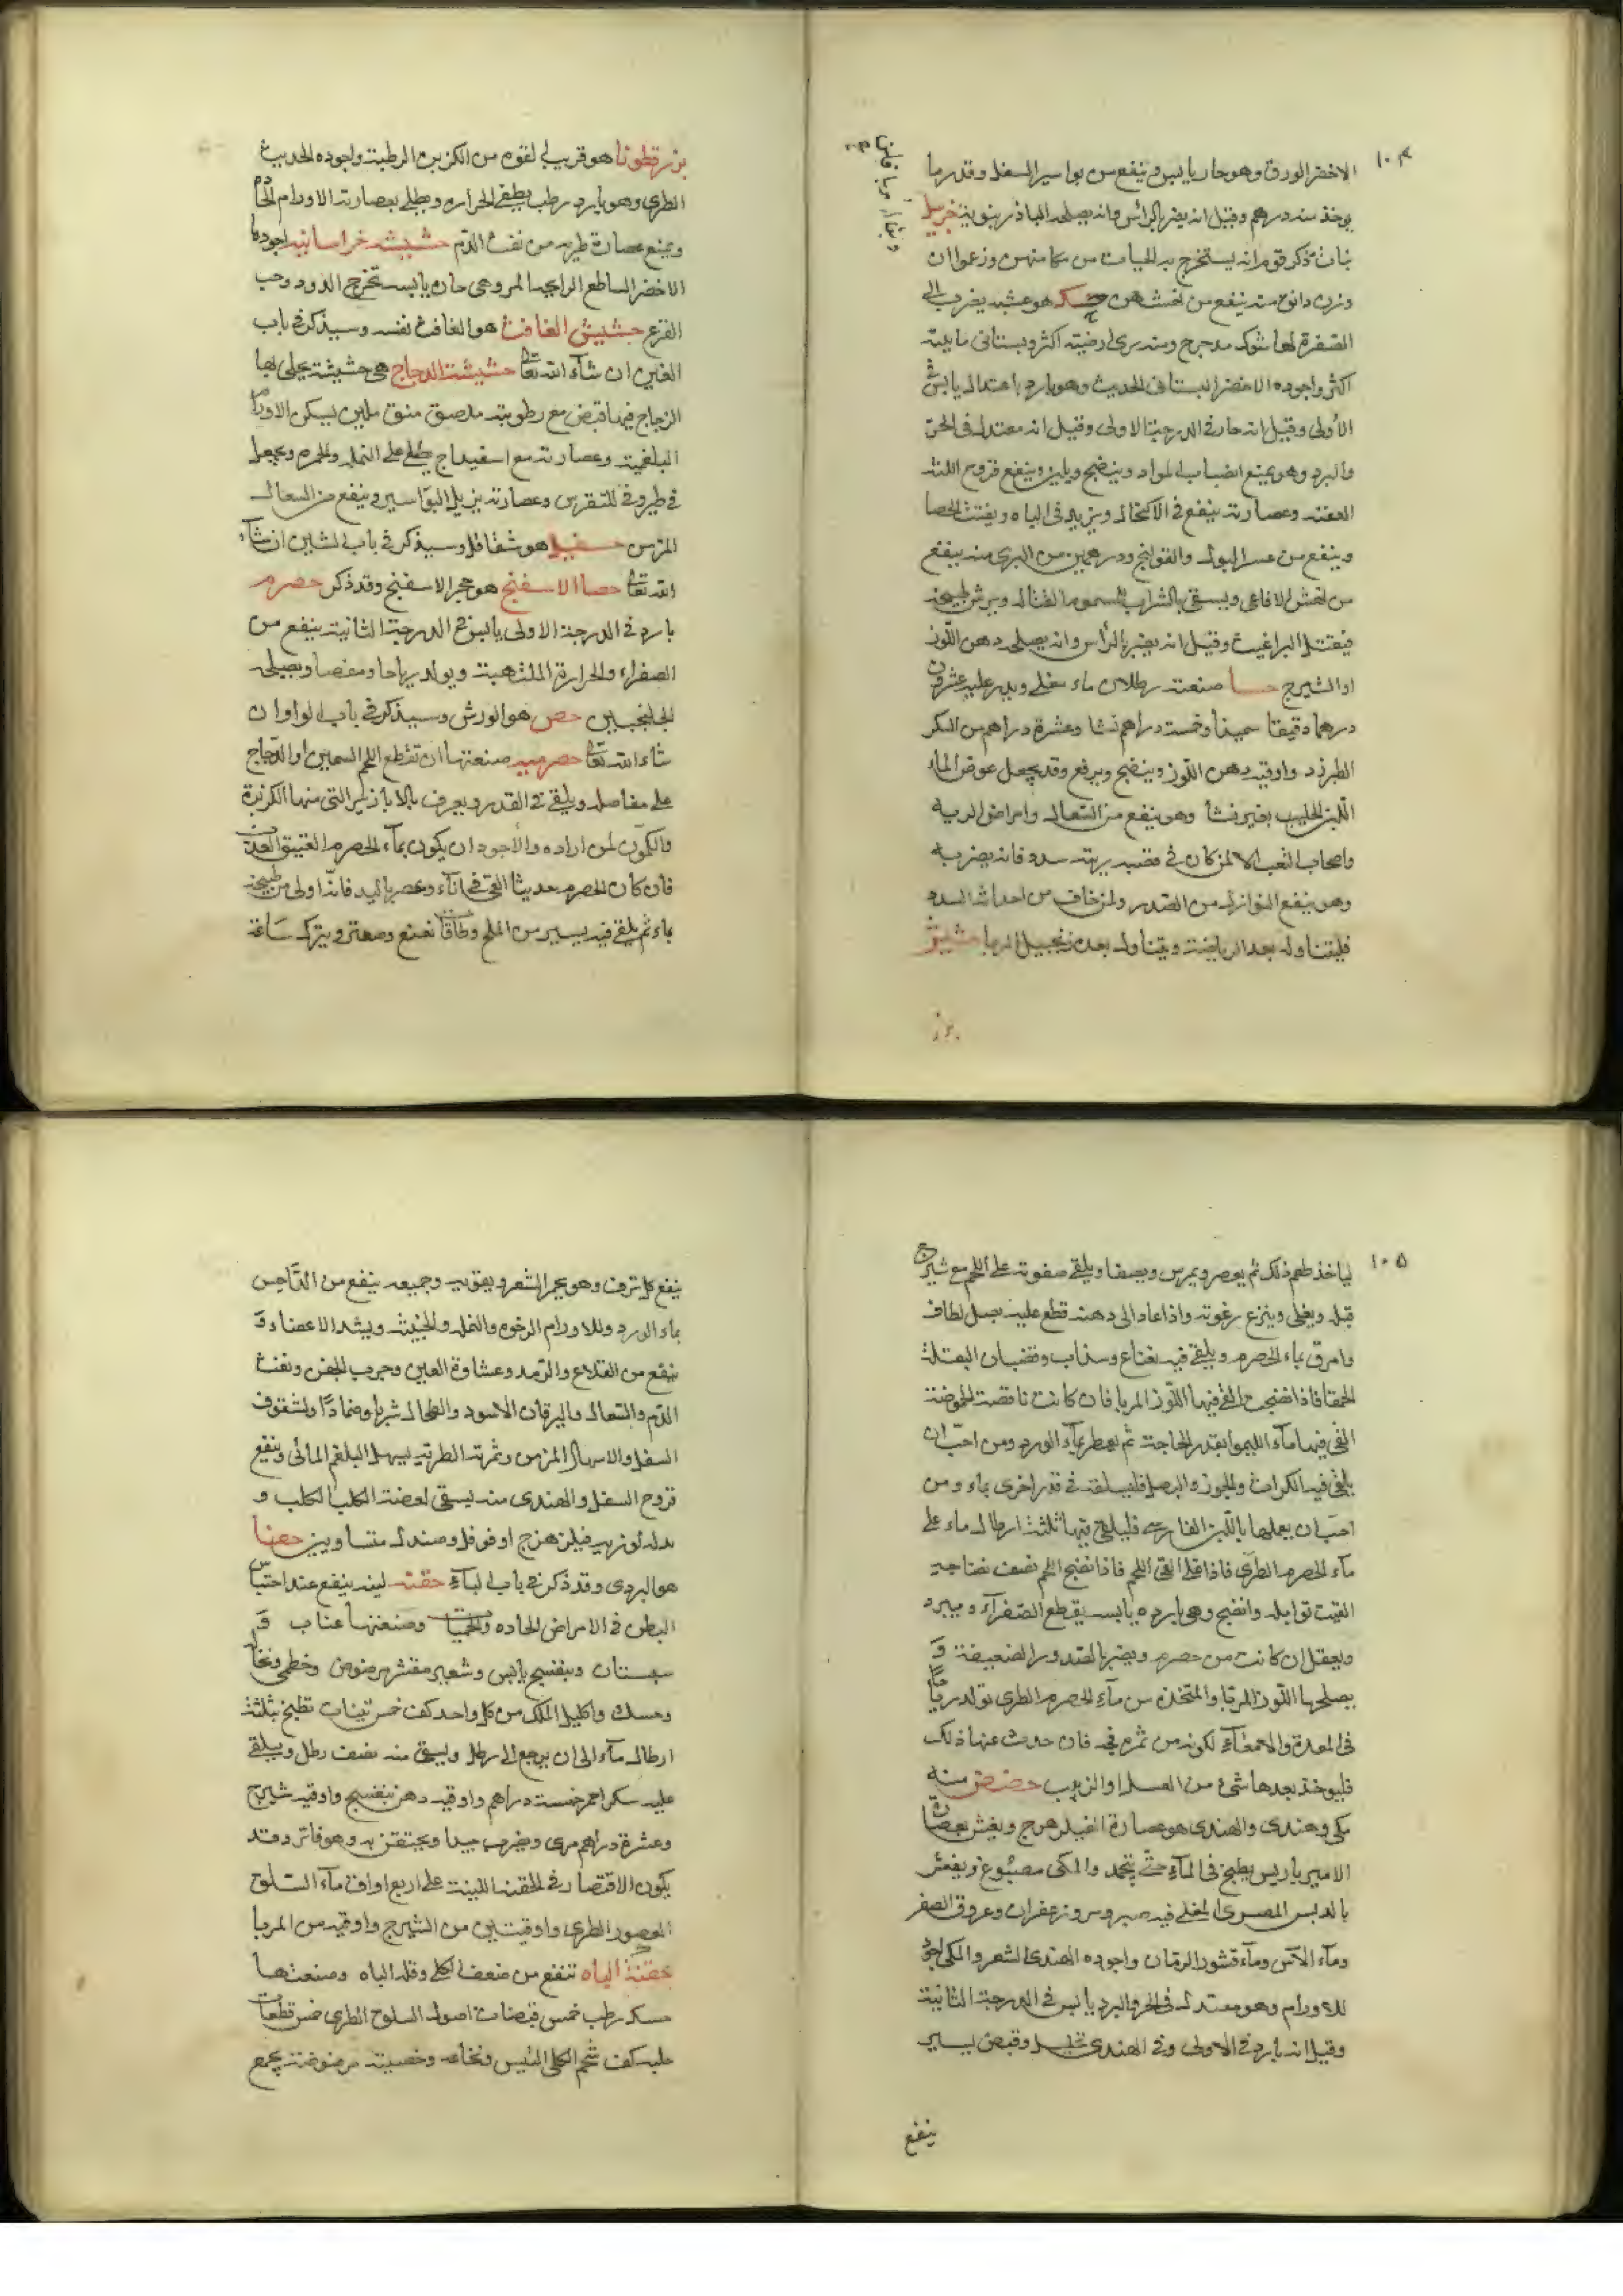 ١٠٤
الاخضر الورق وهو حار يابس وينفع من بواسير السفل وقدر ما
يوخذ منه درهم وقيل انه يضر بالرأس وانه يصلحه الباذرنبويه خربيل
نبات ذكر قوم انه يستخرج به الحيات من مكامنهن وزعموا ان
وزن دانق منه ينفع من نهشهن حسك هو عشبه يضرب الى
الصفرة لها شوك مدحرج ومنه برى ارضيته اكثر وبستانى مائيته
اكثر واجوده الاخضر البستانى الحديث وهو بارد باعتدال يابس فى
الأولى وقيل انه حار فى الدرجة الاولى وقيل انه معتدل فى الحر
والبرد وهو يمنع انصباب المواد وينضج ويلين وينفع قروح اللثه
العفنه وعصارته ينفع فى الاكتحال ويزيد فى الباه ويفتت الحصا
وينفع من عسر البول والقولنج ودرهمين من البرى منه ينفع
من نهش الافاعى ويسقى بالشراب للسموم القتاله ويرش طبيخه
فيقتل البراغيث وقيل انه يضر بالرأس وانه يصلحه دهن اللّوز
او الشيرج حسا صنعته رطلان ماء يغلى ويذر عليه عشرون
درهما دقيقا سميذا وخمسة دراهم نشا وعشرة دراهم من السكر
الطبرزد واوقيه دهن اللوز وينضج ويرفع وقد يجعل عوض الماء
اللبن الحليب بغير نشا وهو ينفع من السعال وامراض الريه
واصحاب التعب الا لمن كان فى قصبه ريته سدد فانه يضر به
وهو ينفع النوازل من الصدر ولمن خاف من احداث السدد
فليتناوله بعد الرياضت ويتناول بعده زنجبيل المربا حشيش
بزر
بزرقطونا هو قريب لقوة من الكزبره الرطبة واجوده الحديث
الطرى وهو بارد رطب يطفى الحراره ويطلى بعصارته الاورام الحاده
ويمنع عصارة طريه من نفث الدّم حشيشه خراسانيه اجودها
الاخضر الساطع الرايحه المر وهى حاره يابسه تستخرج الدود وحب
القرع حشيش الغافت هو الغافت نفسه وسيذكر فى باب
الغين ان شآء الله تعالى حشيشة الدجاج هى حشيشة يجلى بها
الزجاج فيها قبض مع رطوبته ملصق منق ملين يسكن الاورام
البلغمية وعصارته مع اسفيداج يطلى على النمله والحمره ويجعل
فى طروفى للنقرس وعصارته يزيل البواسير وينفع من السعال
المزمن حسفيل هو شقاقل وسيذكر فى باب الشين ان شآء
الله تعالى حصا الاسفنج هو حجر الاسفنج وقد ذكر حصرم
بارد فى الدرجة الاولى يابس فى الدرجة الثانية ينفع من
الصفراء والحرارة الملتهبة ويولد رياحا ومغصا ويصلحه
الجلنجبين حص هو الورش وسيذكر فى باب الواو ان
شاء الله تعالى حصرميه صنعتها ان تقطع اللحم السمين او الدّجاج
على مفاصله ويلقى فى القدر ويعرف بالابازير التى منها الكزبرة
والكمّون لمن اراده والأجود ان يكون بمآء الحصرم العتيق العذب
فان كان الحصرم حديثا القى فى انآء وعصر باليد فانّه اولى من طبيخه
بماء ثم يلقى فيه يسير من الملح وطاقات نعنع وصعتر ويترك ساعة
١٠٥
لياخذ طعم ذلك ثم يعصر ويمرس ويصفا ويلقى صفوته على اللحم مع شيرج
قبله ويغلى وينزع رغوته واذا عاد الى دهنه قطع عليه بصل لطاف
وامرق بماء الحصرم ويلقى فيه نعناع وسذاب وقضبان البقلة
الحمقا فاذا نضجت القى فيها اللّوز المربا فان كانت ناقصة الحموضة
القى فيها مآء الليموا بقدر الحاجة ثم يعطر بمآء الورد ومن احبّ ان
يلقى فيه الكراث والجوز والبصل فليسلقه فى قدر اخرى بماء ومن
احبّ ان يعملها باللّبن الفارسى فليلقى فيها ثلثة ارطال ماء على
مآء الحصرم الطرى فاذا غلا القى اللحم فاذا نضج اللحم نصف نضاجه
القيت توابله وانضج وهى بارده يابسه يقطع الصّفرآء ويبرد
ويعقل ان كانت من حصرم ويضر بالصّدور الضعيفة وَ
يصلحها اللّوز المربا والمتخذه من مآء الحصرم الطرى تولد رياحا
فى المعدة والامعآء لكونه من ثمره فجه فان حدث عنها ذلك
فليوخذ بعدها شئ من العسل او الزبيب حضض منه
مكى وهندى والهندى هو عصارة الفيلزهرج ويغش بعصارة
الامبرباريس يطبخ فى المآء حتّى يتجمد والمكى مصبوغ ويغش
بالدبس المصرى المغلى فيه صبر ومر وزعفران وعروق الصفر
ومآء الآس ومآء قشور الرمّان واجوده الهندى للشعر والمكى اجود
للاورام وهو معتدل فى الحر والبرد يابس فى الدرجة الثانية
وقيل انه بارد فى الاولى وفى الهندى تحليل وقبض يسير
ينفع
ينفع كل نزف وهو يحمر الشعر ويقويه وجميعه ينفع من الدّاحس
بماء الورد وللاورام الرخوه والنمله والخبيثه ويشد الاعضاء وَ
ينفع من القلاع والرّمد وغشاوة العين وجرب الجفن ونفث
الدّم والسّعال واليرقان الاسود والطحال شربا وضمادًا ولشقوق
السفل والاسهال المزمن وثمرته الطريه يسهل البلغم المائى وينفع
قروح السفل والهندى منه يسقى لعضة الكلب الكلب و
بدله لوزيه فيلزهرج او فوفل وصندل متساويين حفنا
هو البردى وقد ذكر فى باب البآء حقنه لينه ينفع عند احتباس
البطن فى الامراض الحاده والحميات وصنعتها عناب وَ
سبستان وبنفسج يابس وشعير مقشر مرضوض وخطمى ونخاله
وحسك واكليل الملك من كل واحد كف خمس تينات تطبخ بثلثة
ارطال مآء الى ان يرجع الى رطل ويسقى منه نصف رطل ويلقى
عليه سكر احمر خمسة دراهم واوقيه دهن بنفسج واوقيه شيرج
وعشرة دراهم مرى ويضرب جيدا ويحتقن به وهو فاتر وقد
يكون الاقتصار فى الحقنة اللينة على اربع اواق مآء السّلق
المعصور الطرى واوقيتين من الشيرج واوقيه من المربا
حقنة الباه تنفع من ضعف الكلى وقلة الباه وصنعتها
حسك رطب خمس قبضات اصول السلوح الطرى خمس قطعات
حلبه كف شحم الكلى التيس ونخاعه وخصيته مرضوضة يجمع